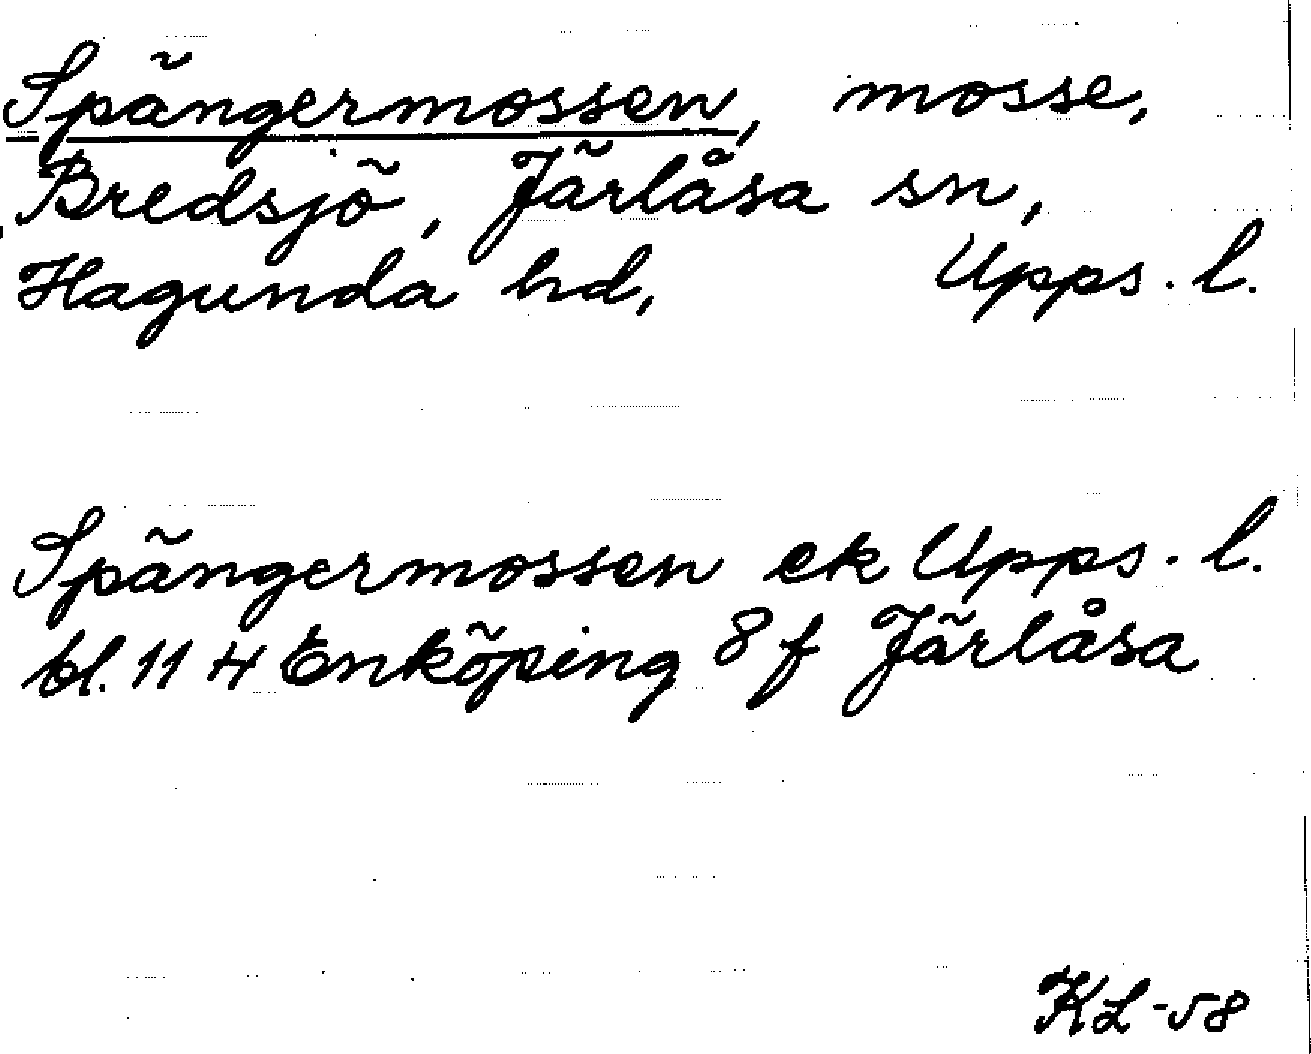 Spängermossen, mosse,
Bredsjö, Järlåsa sn,
Hagunda hd, Upps. l.
Spängermossen ek Upps. l.
bl. 114 Enköping 8f Järlåsa
KL-58